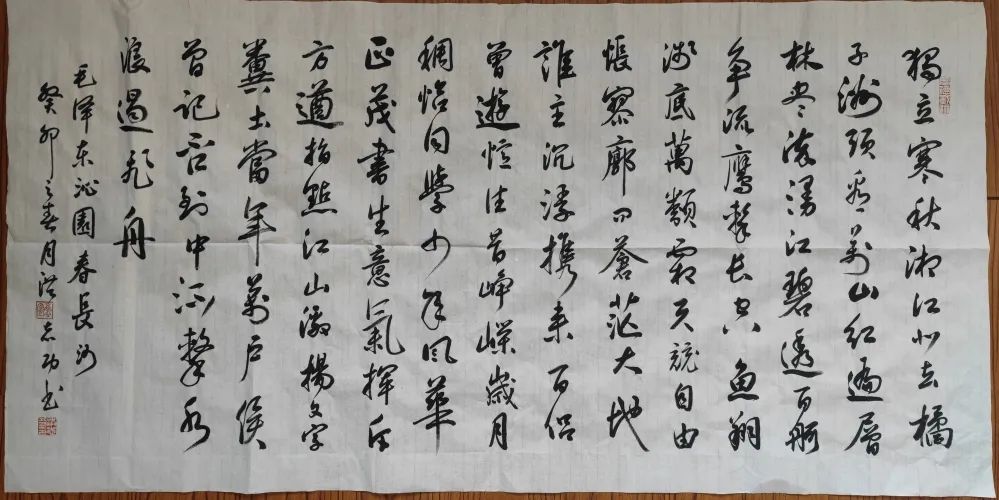 獨立寒秋湘江北去橘
子洲頭看萬山红遍層
林尽染漫江碧透百舸
争流鹰擊長空魚翔
淺底萬類霜天競自由
悵寥廓问蒼茫大地
誰主沉浮携来百侣
曾遊憶往昔崢嶸歲月
稠恰同學少年風華
正茂書生意氣揮斥
方遒指點江山激揚文字
糞土當年萬户侯
曾記否到中流擊水
浪遏飛舟
毛泽东沁園春長沙
癸卯之春月